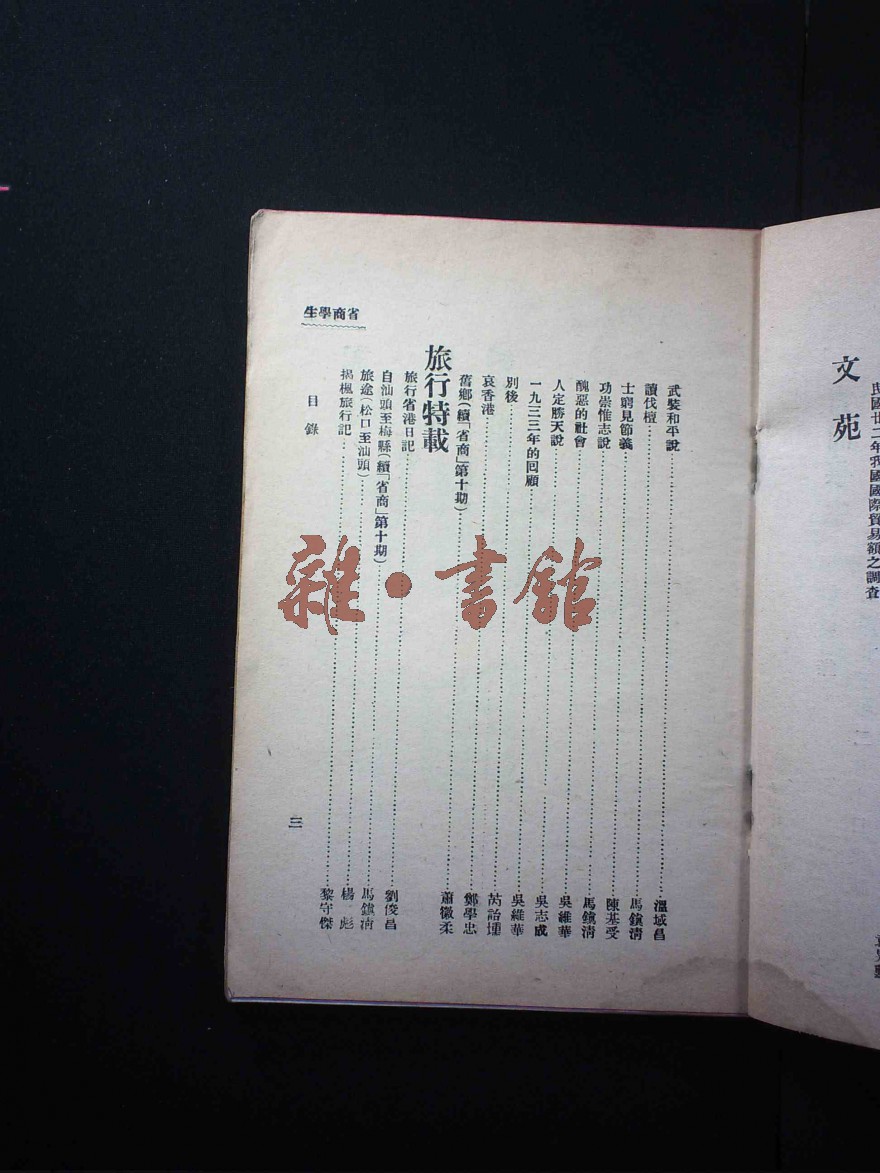 文苑
民國廿二年我國國際貿易額之調查
省商學生
武裝和平說……溫域昌
讀伐檀……馬鎭淸
士窮見節義……陳基受
功崇惟志說……馬鎭淸
醜惡的社會……吳維華
人定勝天說……吳志成
一九三三年的回顧……吳維華
別後……芮詒壎
哀香港……鄭學忠
舊鄉(續「省商」第十期)……蕭徽柔
旅行特載
旅行省港日記……劉俊昌
自汕頭至梅縣(續「省商」第十期)……馬鎭淸
旅途(松口至汕頭)……楊彪
揭楓旅行記……黎守傑
目錄
三
雜·書館